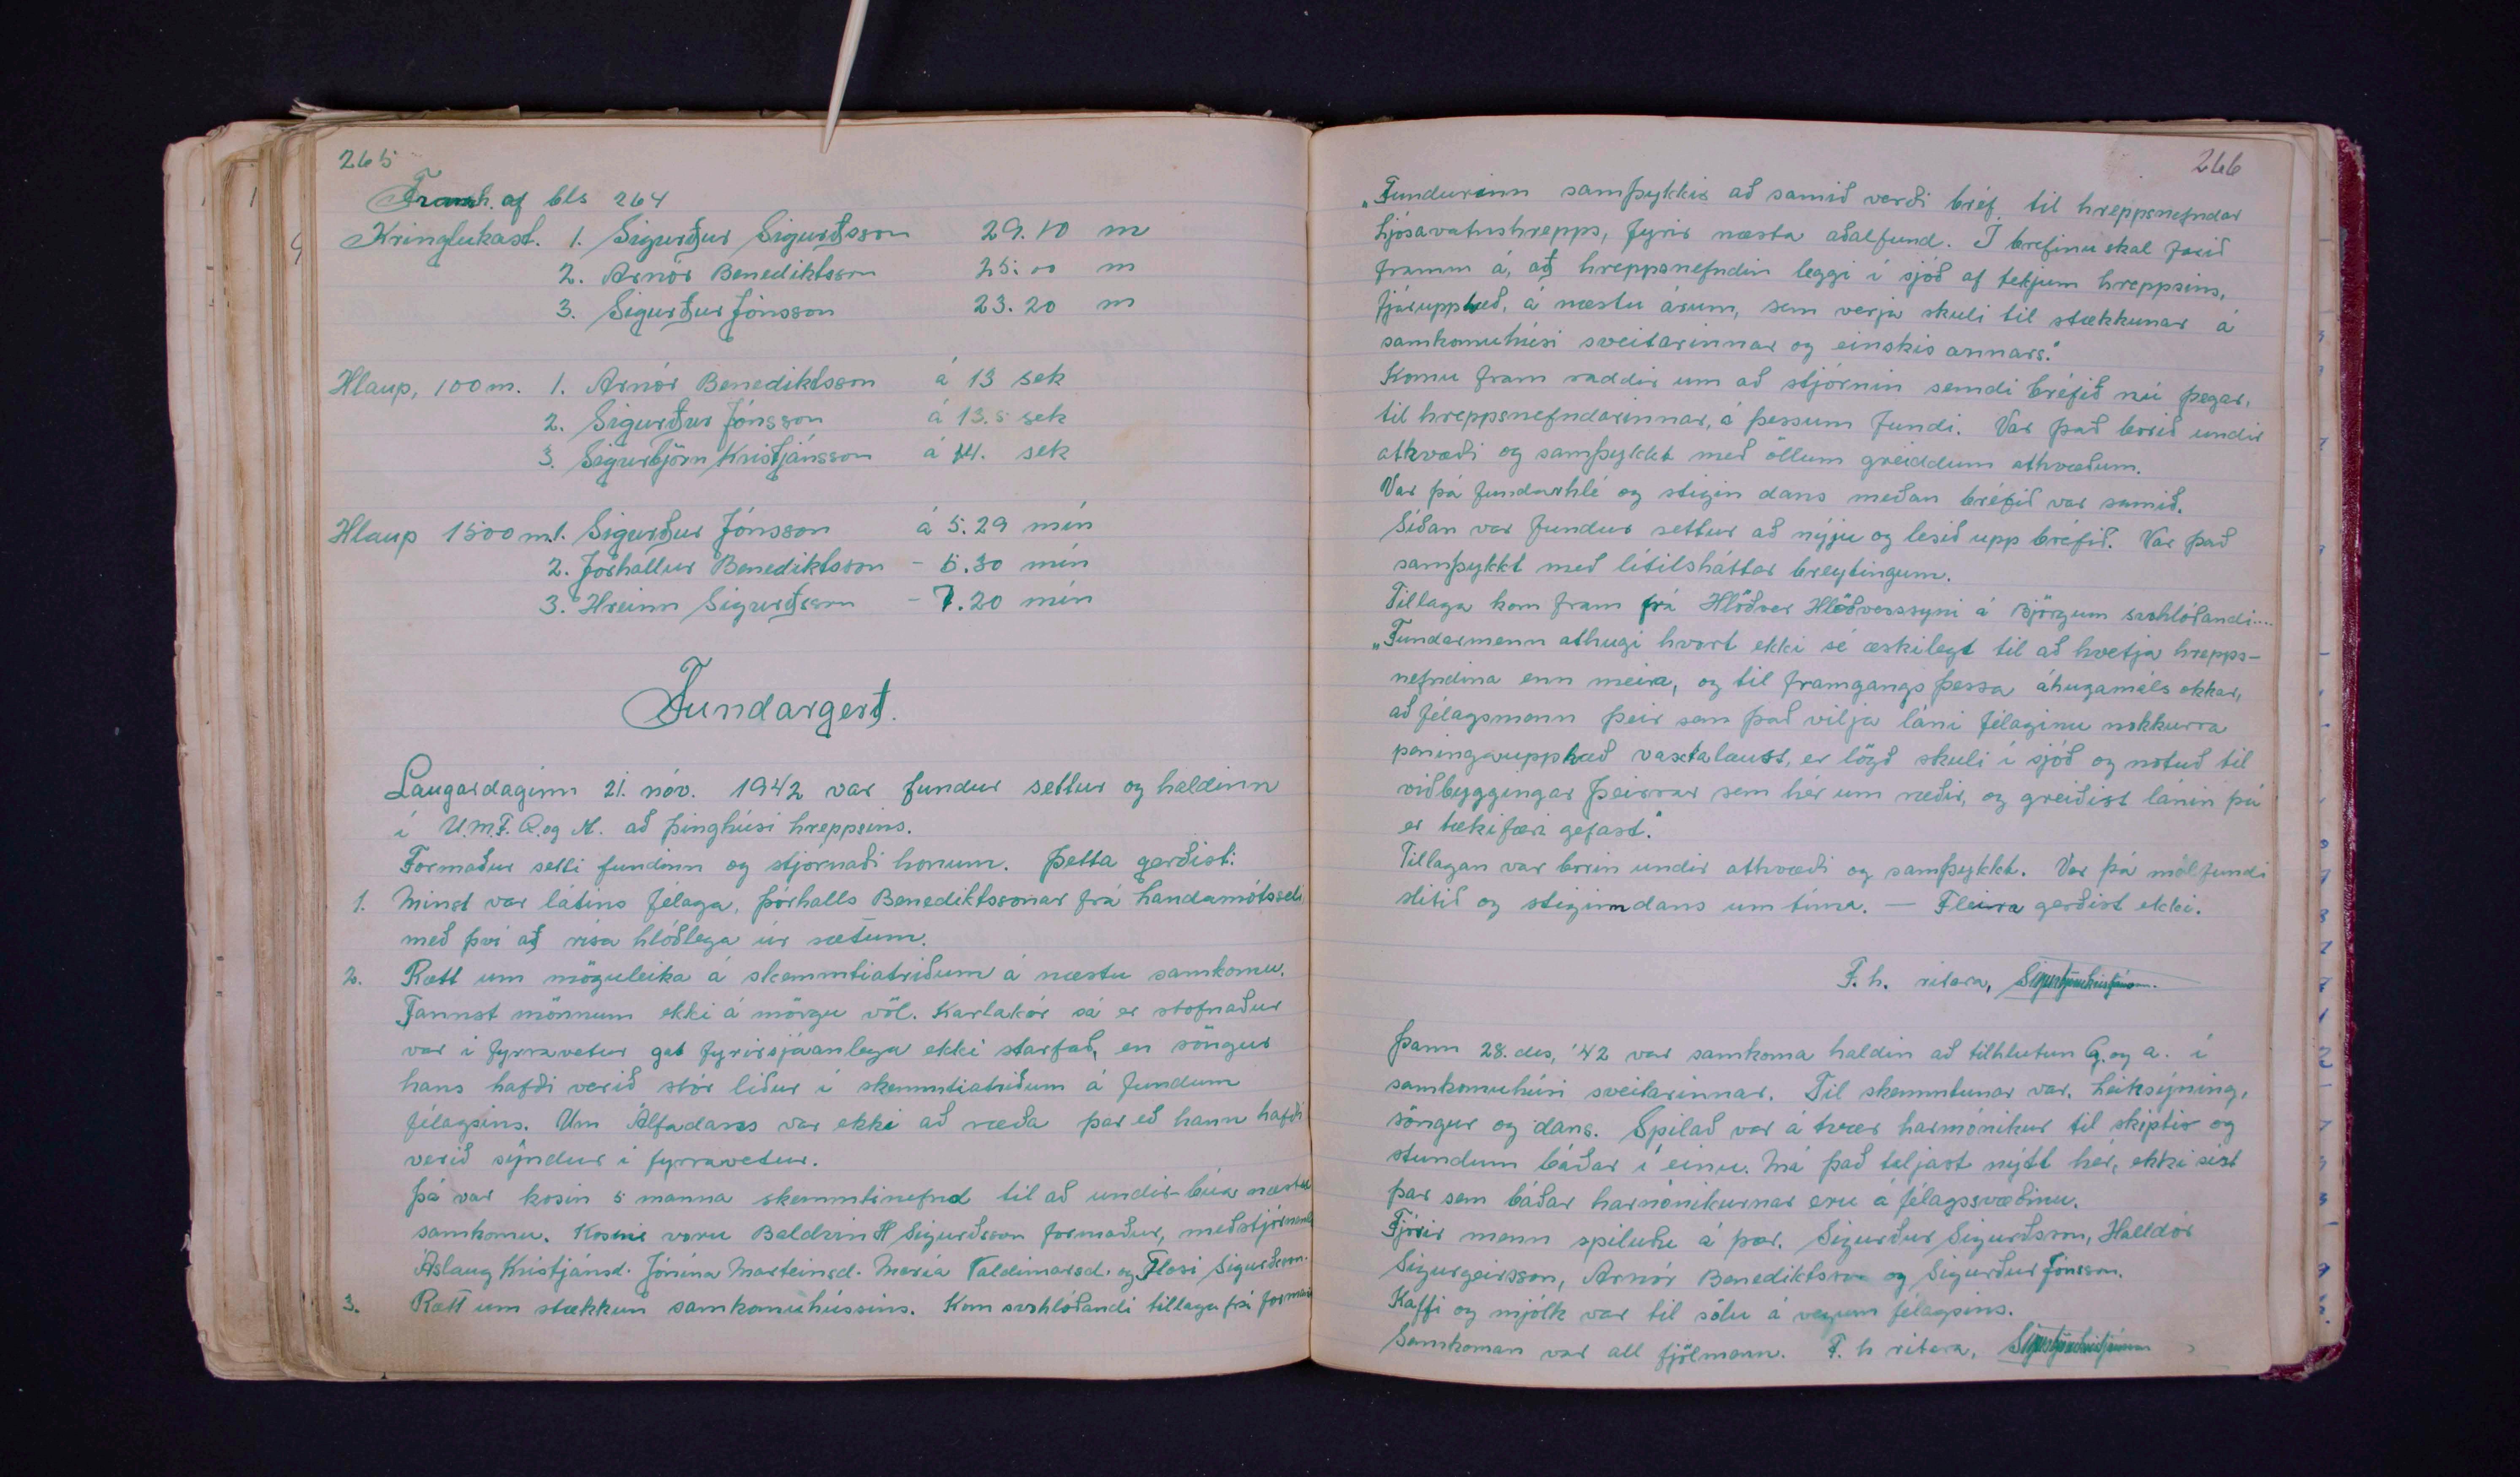 265
Framh. af bls 264
Kringlukast. 1. Sigurður Sigurðsson 29.10 m
2. Arnór Benediktsson 25.00 m
3. Sigurður Jónsson 23.20 m
Hlaup, 100 m. 1. Arnór Benediktsson á 13 sek
2. Sigurður Jónsson á 13.5 sek
3. Sigurbjörn Kristjánsson á 14. sek
Hlaup 1500 m. 1. Sigurður Jónsson á 5.29 mín
2. Þórhallur Benediktsson - 5.30 mín
3. Hreinn Sigurðsson - 7.20 mín
Fundargerð.
Laugardaginn 21. nóv. 1942 var fundur settur og haldinn
í U.M.F. G. og A. að þinghúsi hreppsins.
Formaður setti fundinn og stjórnaði honum. Þetta gerðist:
1. Minst var látins félaga, Þórhalls Benediktssonar frá Landamótsseli
með því að rísa hlóðlega úr sætum.
2. Rætt um möguleika á skemmtiatriðum á næstu samkomu.
Fannst mönnum ekki á mörgu völ. Karlakór sá er stofnaður
var í fyrravetur gat fyrirsjáanlega ekki starfað, en söngur
hans hafði verið stór liður í skemmtiatriðum á fundum
félagsins. Um Álfadans var ekki að ræða þar eð hann hafði
verið sýndur í fyrravetur.
Þá var kosin 5 manna skemmtinefnd til að undir-búa næstu
samkomu. Kosnir voru Baldvin H Sigurðsson formaður, meðstjórnend
Áslaug Kristjánsd. Jónína Marteinsd. María Valdimarsd. og Flosi Sigurðsson.
3. Rætt um stækkun samkomuhússins. Kom svohlóðandi tillaga frá forman
266
„Fundurinn samþykkir að samið verði bréf til hreppsnefndar
Ljósavatnshrepps, fyrir næsta aðalfund. Í bréfinu skal farið
framm á, að hreppsnefndin leggi í sjóð af tekjum hreppsins,
fjárupphæð, á næstu árum, sem verja skuli til stækkunar á
samkomuhúsi sveitarinnar og einskis annars."
Komu fram raddir um að stjórnin sendi bréfið nú þegar,
til hreppsnefndarinnar, á þessum fundi. Var það borið undir
atkvæði og samþykkt með öllum greiddum atkvæðum.
Var þá fundarhlé og stigin dans meðan bréfið var samið.
Síðan var fundur settur að nýju og lesið upp bréfið. Var það
samþykkt með lítilsháttar breytingum.
Tillaga kom fram frá Hlöðver Hlöðverssyni á Björgum svohlóðandi....
„Fundarmenn athugi hvort ekki sé æskilegt til að hvetja hrepps-
nefndina enn meira, og til framgangs þessa áhugamáls okkar,
að félagsmenn þeir sem það vilja láni félaginu nokkurra
peningaupphæð vaxtalaust, er lögð skuli í sjóð og notuð til
viðbyggingar þeirrar sem hér um ræðir, og greiðist lánin þá
er tækifæri gefast."
Tillagan var borin undir atkvæði og samþykkt. Var þá málfundi
slitið og stiginn dans um tíma. — Fleira gerðist ekki.
F. h. ritara, Sigurbjörn Kristjánsson.
Þann 28. des, '42 var samkoma haldin að tilhlutun G. og a. í
samkomuhúsi sveitarinnar. Til skemmtunar var, Leiksýning,
söngur og dans. Spilað var á tvær harmónikur til skiptis og
stundum báðar í einu. Má það teljast nýtt hér, ekki síst
þar sem báðar harmónikurnar eru á félagssvæðinu.
Fjórir menn spiluðu á þær. Sigurður Sigurðsson, Halldór
Sigurgeirsson, Arnór Benediktsson og Sigurður Jónsson.
Kaffi og mjólk var til sölu á vegum félagsins.
Samkoman var all fjölmenn. F. h ritara, Sigurbjörn Kristjánsson